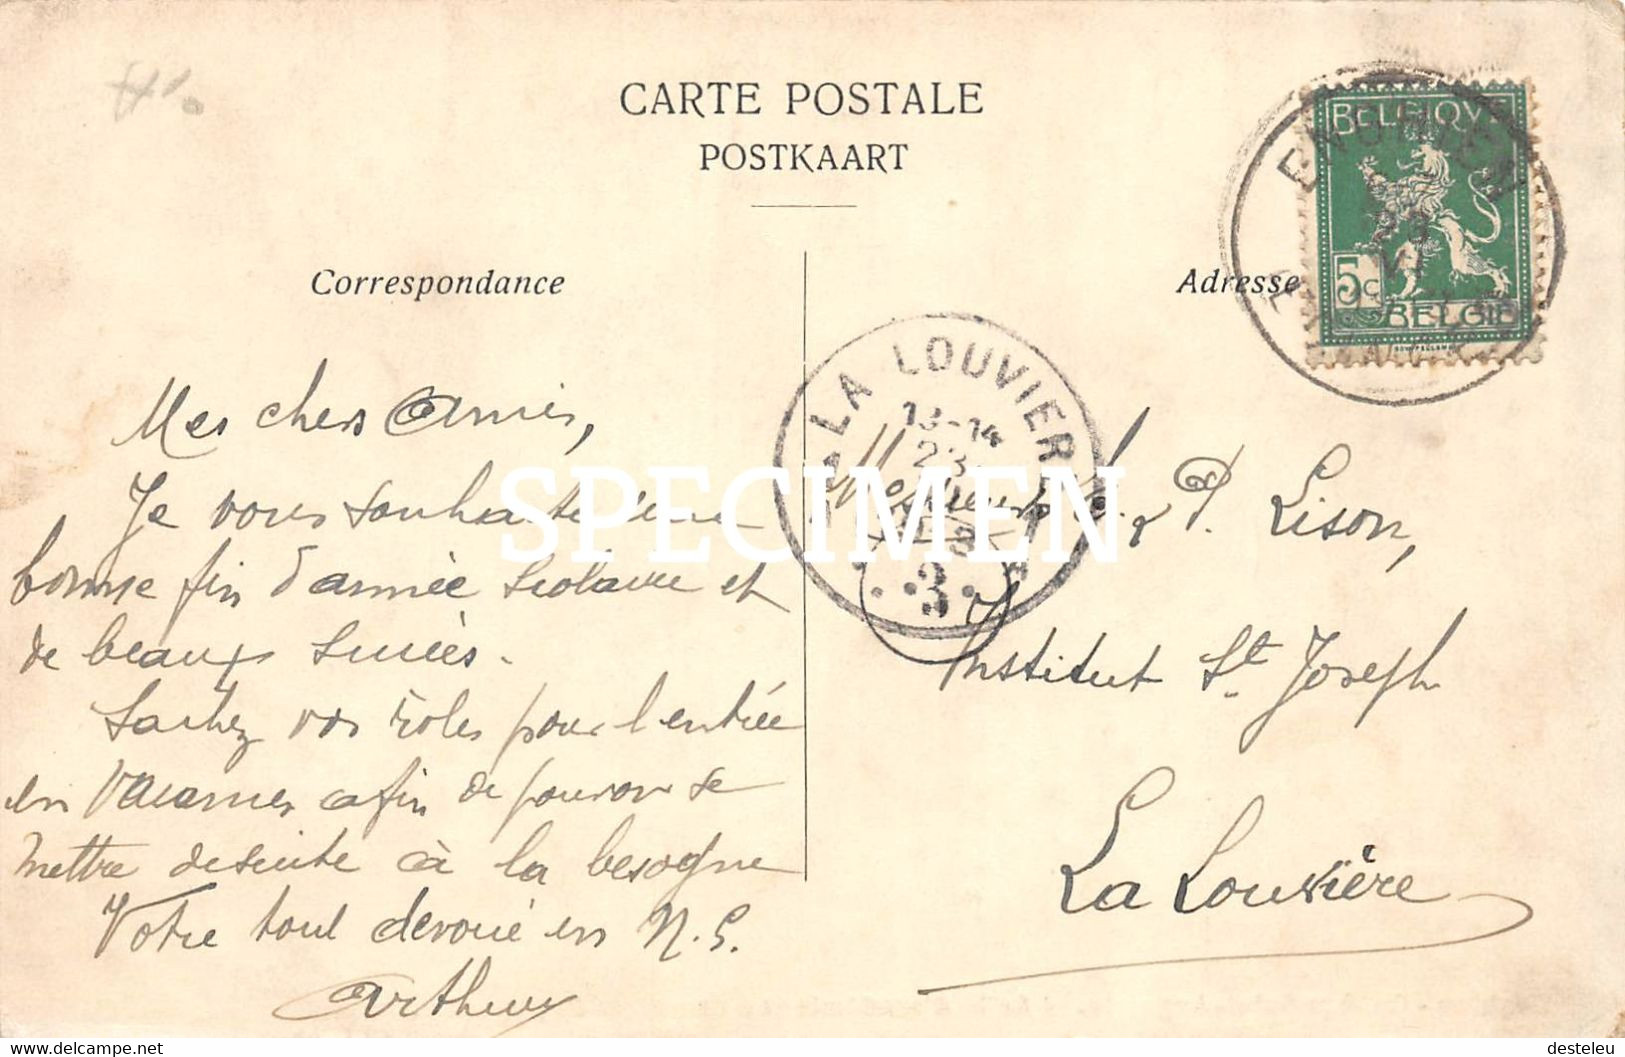 CARTE POSTALE
POSTKAART
Correspondance
Adresse
BELGIQUE
5c
BELGIË
ENGHIEN
LA LOUVIÈRE
13-14
23
3
SPECIMEN
Mes chers Amis,
Je vous souhaite une
bonne fin d'année scolaire et
de beaux succès.
Sachez vos rôles pour l'entrée
en vacances afin de pouvoir se
mettre de suite à la besogne
Votre tout dévoué en N.S.
Arthur
Messieurs L. & P. Lison,
Institut St Joseph
La Louvière
Website : www.delcampe.net
desteleu